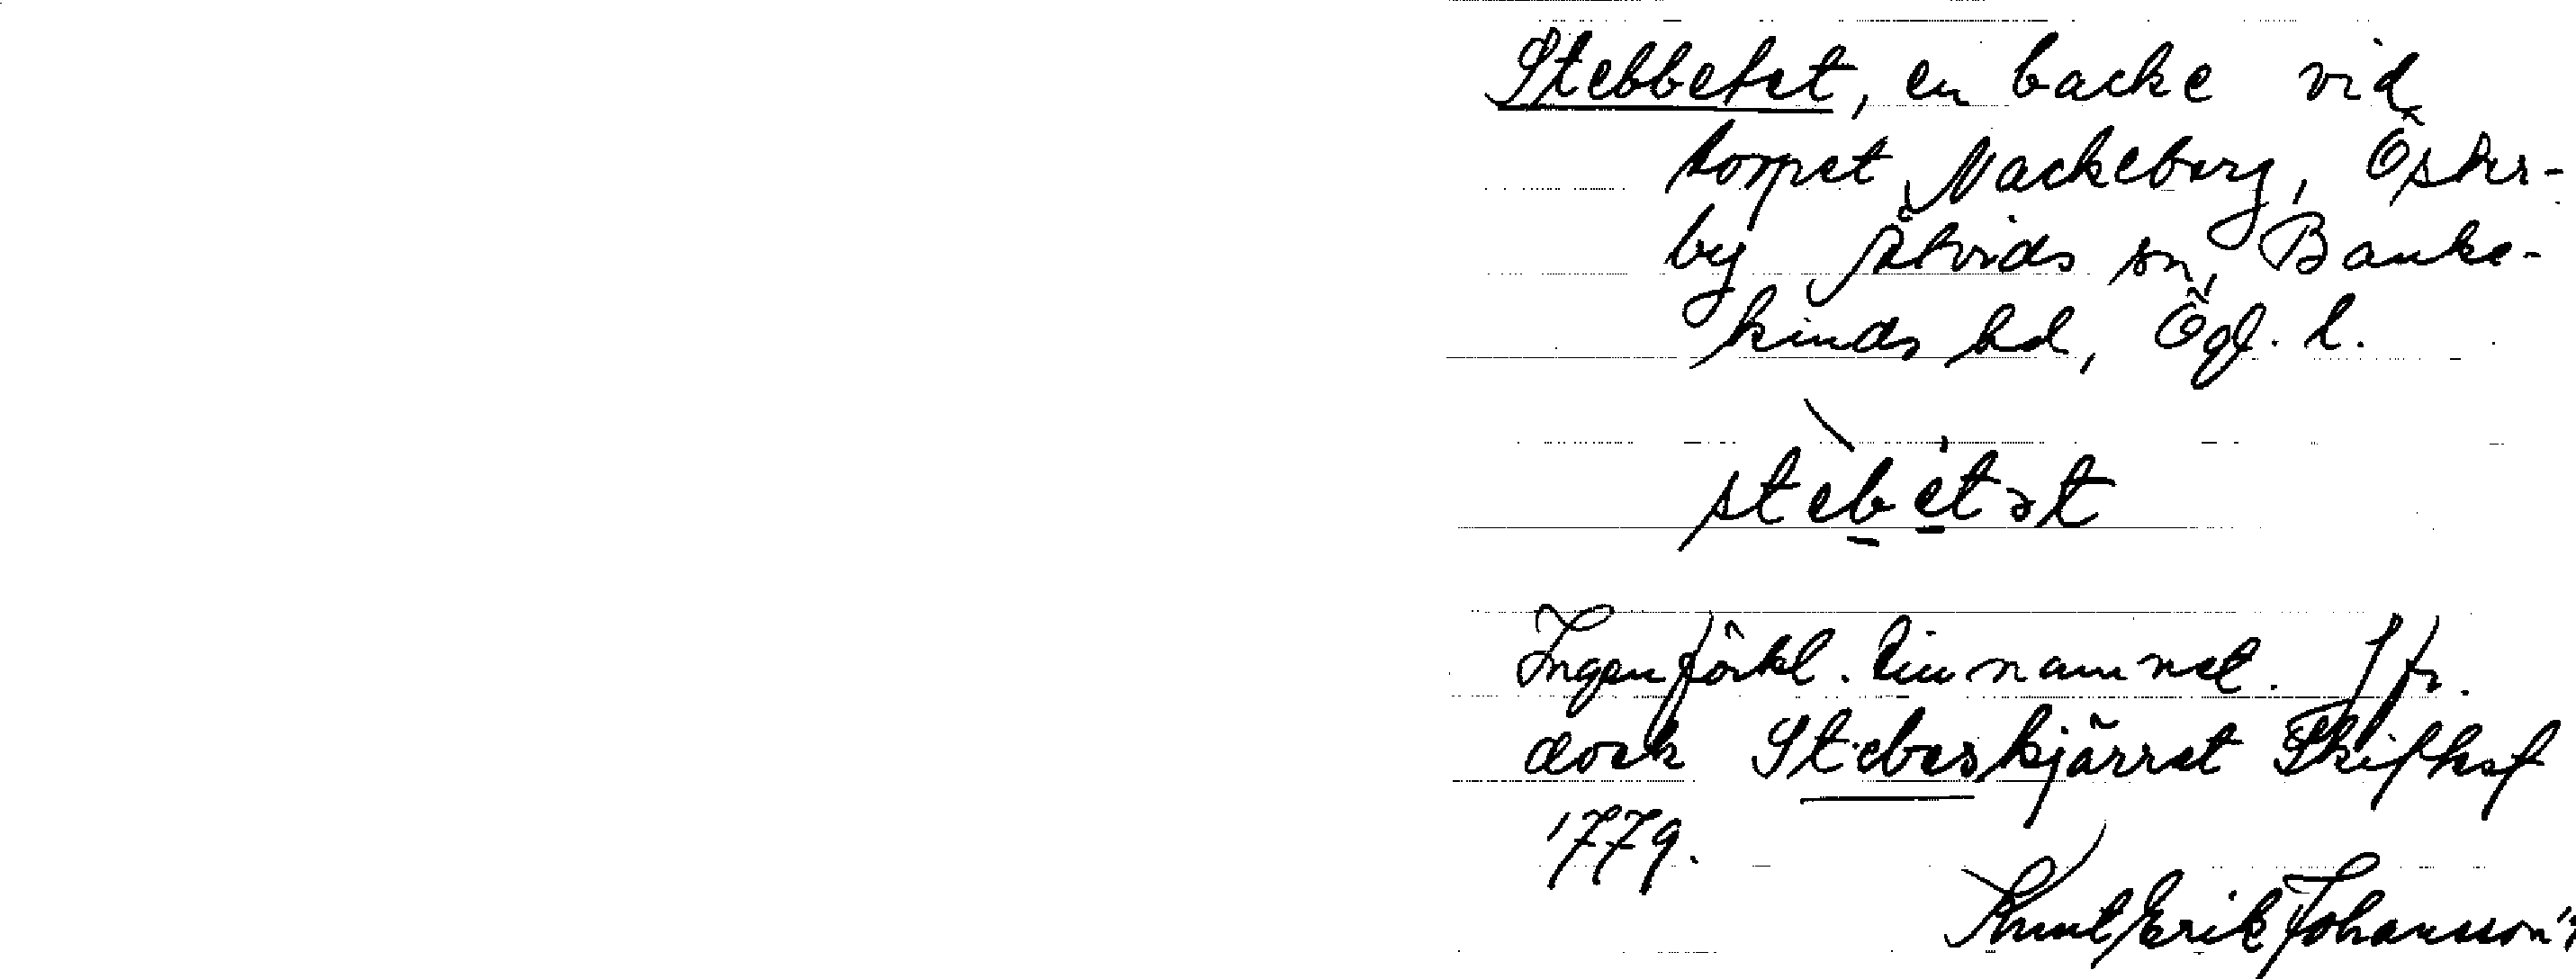 Stebbetet, en backe vid
torpet Nackeborg, Öster-
by Åtvids sn, Banke-
kinds hd, Ögl. l.
stebetət
Ingen förkl. till namnet. Jfr.
dock Stebeskjärret Skifhsf
1779.
Knut Erik Johansson